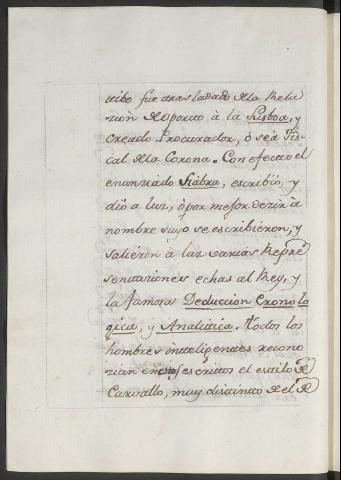 tibo fue trasladado de la Rela
zion de Oporto à la Lisboa, y
creado Procurador, ò sea Fis-
cal de la Corona. Con efecto el
enunziado Siabra, escribiò, y
diò a luz, ò por mejor dezir à
nombre suyo se escribieron, y
salieron à luz varias Repre
sentaziones echas al Rey, y
la famosa Deduccion Cronolo
gica, y Analitica. Todos los
hombres inteligentes recono
zian en estos escritos el estilo de
Carvallo, muy distinto de el de